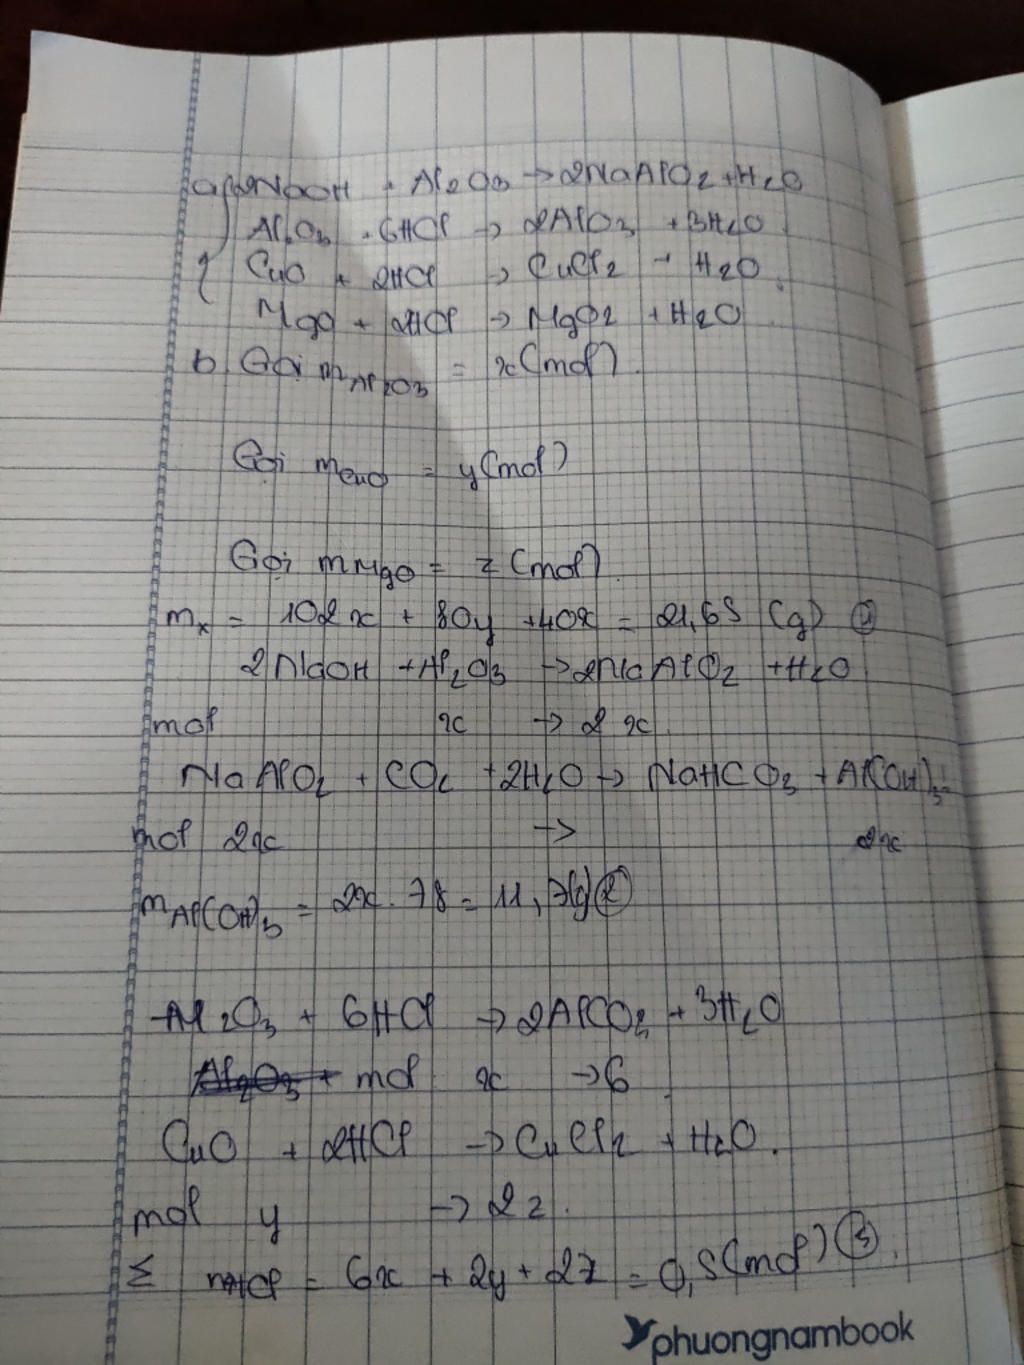 a, 2NaOH + Al2O3 → 2NaAlO2 + H2O
Al2O3 + 6HCl → 2AlO3 + 3H2O
CuO + 2HCl → CuCl2 + H2O
MgO + 2HCl → MgO2 + H2O
b Gọi mAl2O3 = x(mol).
Gọi mCuO = y(mol)
Gọi mMgO = z(mol)
mx = 102x + 80y + 40x = 21,65 (g) (1)
2NaOH + Al2O3 → 2NaAlO2 + H2O
mol x → 2x
NaAlO2 + CO2 + 2H2O → NaHCO3 + Al(OH)3
mol 2x → 2x
mAl(OH)3 = 2x.78 = 11,7(g)(2)
Al2O3 + 6HCl → 2AlCO3 + 3H2O
mol x → 6
CuO + 2HCl → CuCl2 + H2O.
mol y → 2z.
Σ nHCl = 6x + 2y + 2z = 0,5(mol) (3).
phuongnambook